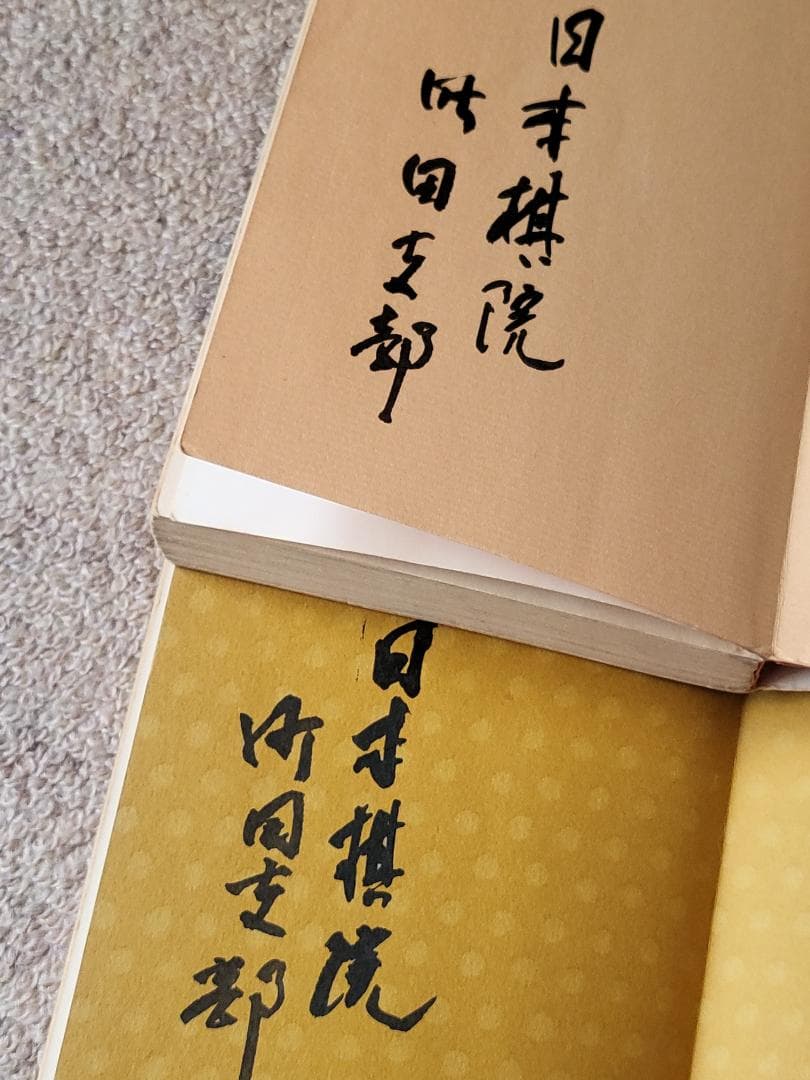 日本棋院
田支部
日本棋院
田支部